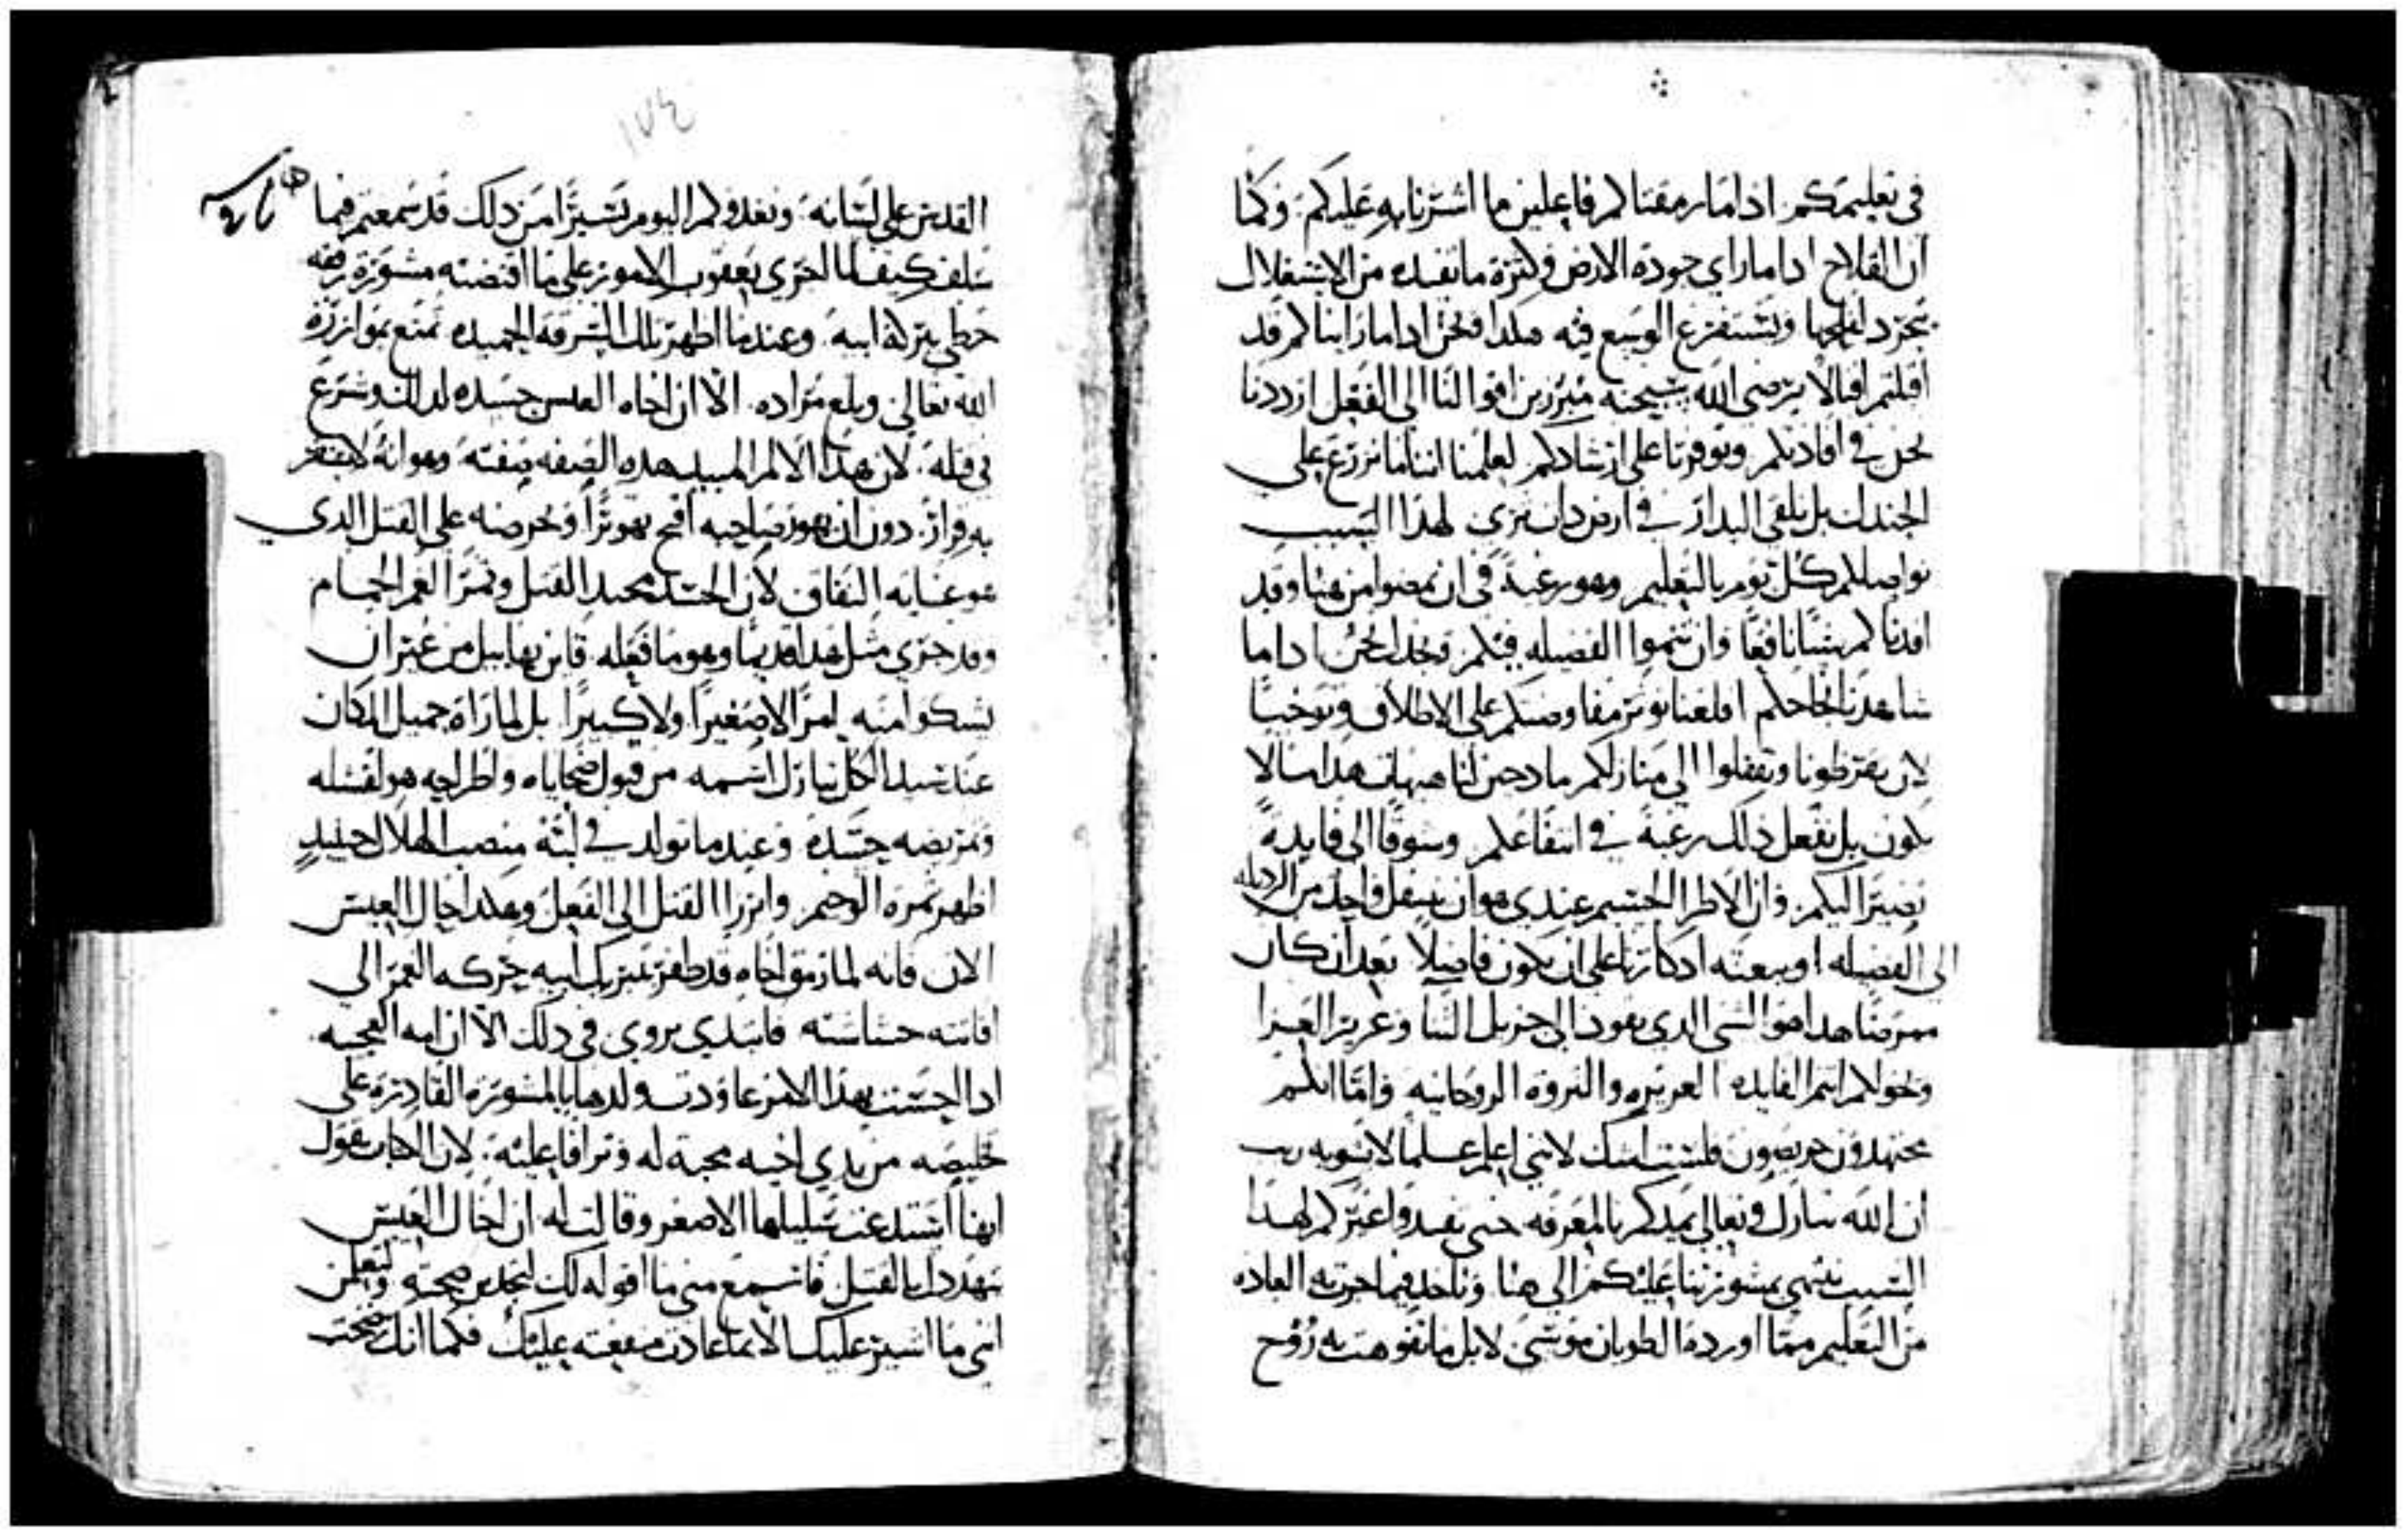 في تعليمكم. ادا ما رمقناكم فاعلين ما اشرنا به عليكم. وكما
ان الفلاح ادا ما راي جودة الارض وكثرة ما تفيده من الاستغلال
يتجرد لفلحها ويستفرغ الوسع فيه هكدا نحن ادا ما رايناكم قد
اقبلتم اقبالا يرضي الله سبحنه مبرزين اقوالنا الى الفعل ازددنا
نحن في افادتكم وتوفرنا على ارشادكم لعلمنا اننا ما نزرع على
الجندل بل نلقي البدار في ارض دات ثرى لهدا السبب
نواصلكم كل يوم بالتعليم وهو رغبة في ان تمضوا من هنا وقد
افدناكم شيا نافعا وان تنموا الفضيله فيكم ونحن ادا ما
شاهدنا نجاحكم
لان تقرظونا وتقفلوا الى منازلكم مادحين لنا هيهات هدا ما لا
يكون بل نفعل دلك رغبة في انتفاعكم وشوقا الى فايدة
تصير اليكم. وان الاطرا الجسيم عندي هو ان ينتقل واحد من الرديله
الى الفضيله او يبعثه ادكارنا على ان يكون فاضلا بعد ان كان
ممرضا هدا هو الشي الدي يعود الى جزيل الثنا وعزيز العزا
ونحولكم انتم الفايده العزيزه والثروة الروحانيه واما انكم
مجتهدون حريصون فلست اشك لانني اعلم علما لا يشوبه ريب
ان الله تبارك وتعالى يمدكم بالمعرفه حتى تفيدوا غيركم لهدا
السبب ننتهي بمشورتنا عليكم الى هنا وناخد فيما جرت به العاده
من التعليم مما اورده الطوبان موسى لا بل ما تفوهت به روح
١٧٤
القدس على لسانه. ونغدوكم اليوم يسيرا من دلك قد سمعتم فيما
سلف كيف لما اجرى يعقوب الامور على ما اقتضته مشورة رفقه
حظي ببركة ابيه. وعندما اظهر تلك السرقه الحميده تمتع بموازرة
الله تعالى وبلغ مراده. الا ان اخاه العيس حسده لدلك وشرع
في قتله. لان هدا الالم المبيد هده الصفه صفته وهو انه لا يقر
به قرار. دون ان يهور صاحبه اقبح تهورا ويحرضه على القتل الدي
هو غاية النفاق لان الحسد محتد القتل وثمر الغمر الحمام
وقد جرى مثل هدا قديما وهو ما فعله. قاين بهابيل من غير ان
يشكو منه امرا لا صغيرا ولا كبيرا بل لما راه جميل المكان
عند سيد الكل تبارك اسمه من قبول ضحاياه واطراحه هو لفشله
وتمريضه حسده وعندما تولد في لبه منصب الهلال حينيد
اظهر ثمرة الوخيم وابرزا القتل الى الفعل وهكدا حال العيس
الان فانه لما رمق اخاه قد ظفر بتبريك ابيه حركه الغمر الى
افاتته حشاشته فابتدى يروي في دلك الا ان امه العجيبه
ادا احست بهدا الامر عاودت ولدها بالمشورة القادرة على
خليصه من يدي اخيه محبة له وترافا عليه. لان الكتاب يقول
انها استدعت سليلها الاصغر وقالت له ان اخاك العيس
يتهددك بالقتل فاسمع مني ما اقوله لك لتجد من صحته ولتعلمن
انني ما اشير عليك الا بما عادت منفعته عليك فكما انك نجحت